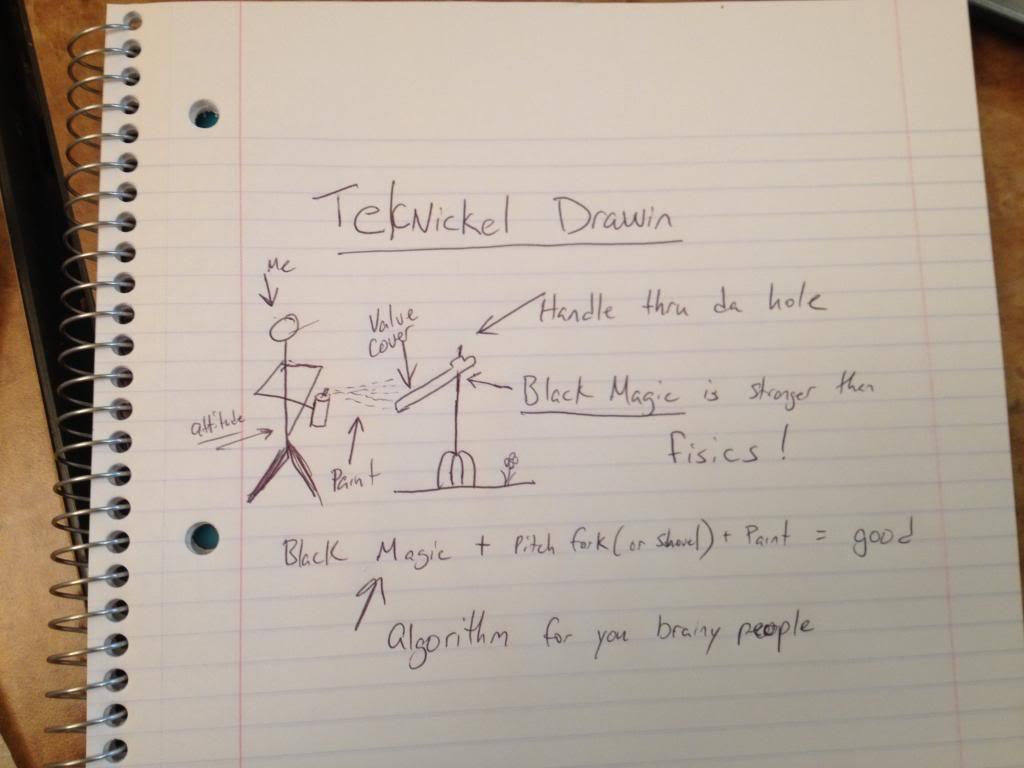 TekNickel Drawin
Me
Valve
Cover
Handle thru da hole
Black Magic is stronger then
fisics!
attitude
Paint
Black Magic + Pitch fork (or shovel) + Paint = good
Algorithm for you brainy people